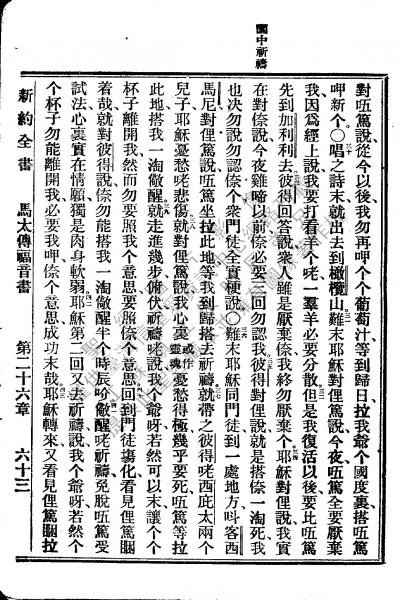 園中祈禱
對㕶篤說從今以後我勿再呷个个葡萄汁等到歸日拉我爺个國度裏搭㕶篤
呷新个〇唱之詩末就出去到橄欖山難末耶穌對㕶篤說今夜㕶篤全要厭棄
我因爲經上說我要打看羊个咾一羣羊必要分散但是我復活以後要比㕶篤
先到加利利去彼得回答說衆人雖是厭棄倷我終勿厭棄个耶穌對俚說我實
在對倷說今夜雞啼以前倷必要三回勿認我彼得對俚說就是搭倷一淘死我
也决勿說勿認倷个衆門徒全實梗說〇難末耶穌同門徒到一處地方呌客西
馬尼對俚篤說㕶篤坐拉此地等我到歸搭去祈禱就帶之彼得咾西庇太兩个
兒子耶穌憂愁咾悲傷就對俚篤說我心裏或作靈魂憂愁得極幾乎要死㕶篤等拉
此地搭我一淘儆醒就走進幾步俯伏祈禱咾說我个爺呀若然可以末讓个个
杯子離開我然而勿要照我个意思要照倷个意思回到門徒塲化看見俚篤睏
着哉就對彼得說倷勿能搭我一淘儆醒半个時辰吤儆醒咾祈禱免脫㕶篤受
試法心裏實在情願獨是肉身軟弱耶穌第二回又去祈禱說我个爺呀若然个
个杯子勿能離開我必要我呷倷个意思成功末哉耶穌轉來又看見俚篤睏拉
新約全書 馬太傳福音書 第二十六章 六十三